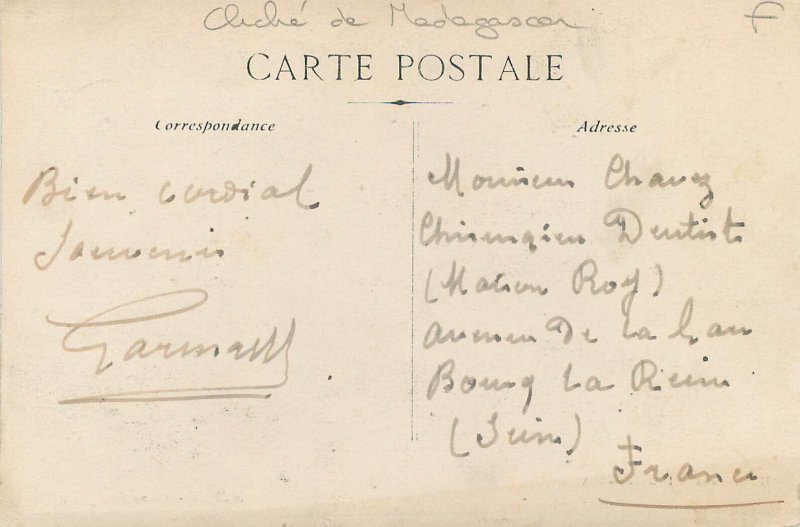 Cliché de Madagascar F
CARTE POSTALE
Correspondance
Bien cordial
Souvenir
Adresse
Monsieur Chavez
Chirurgien Dentiste
(Maison Roy)
Avenue De La Gare
Bourg La Reine
(Seine)
France